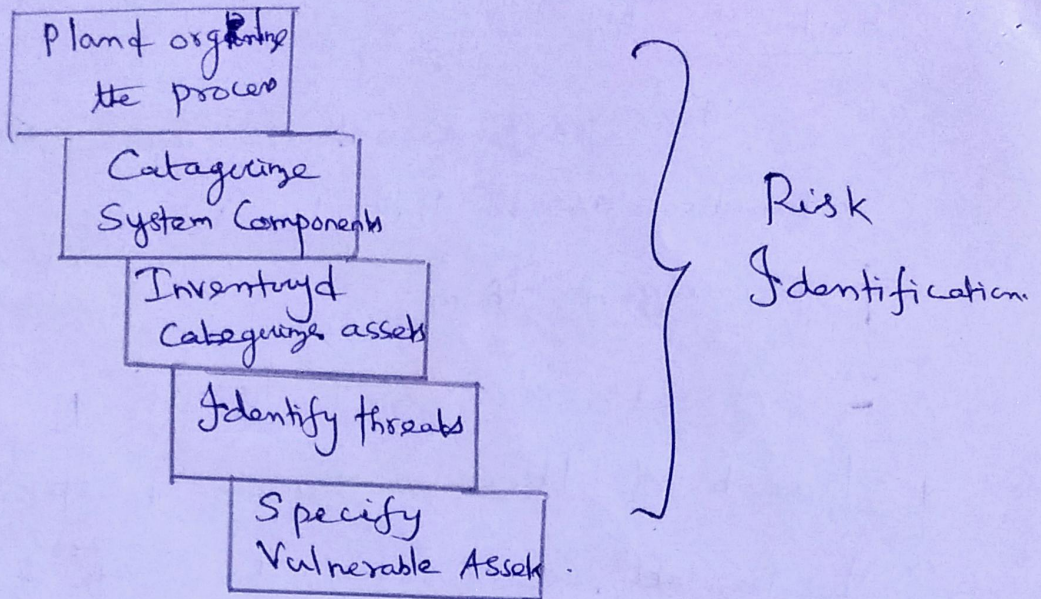 Pland organize
the process
Catagorize
System Components
Inventoryd
Categorize assets
Identify threats
Specify
Vulnerable Assets.
Risk
Identification.